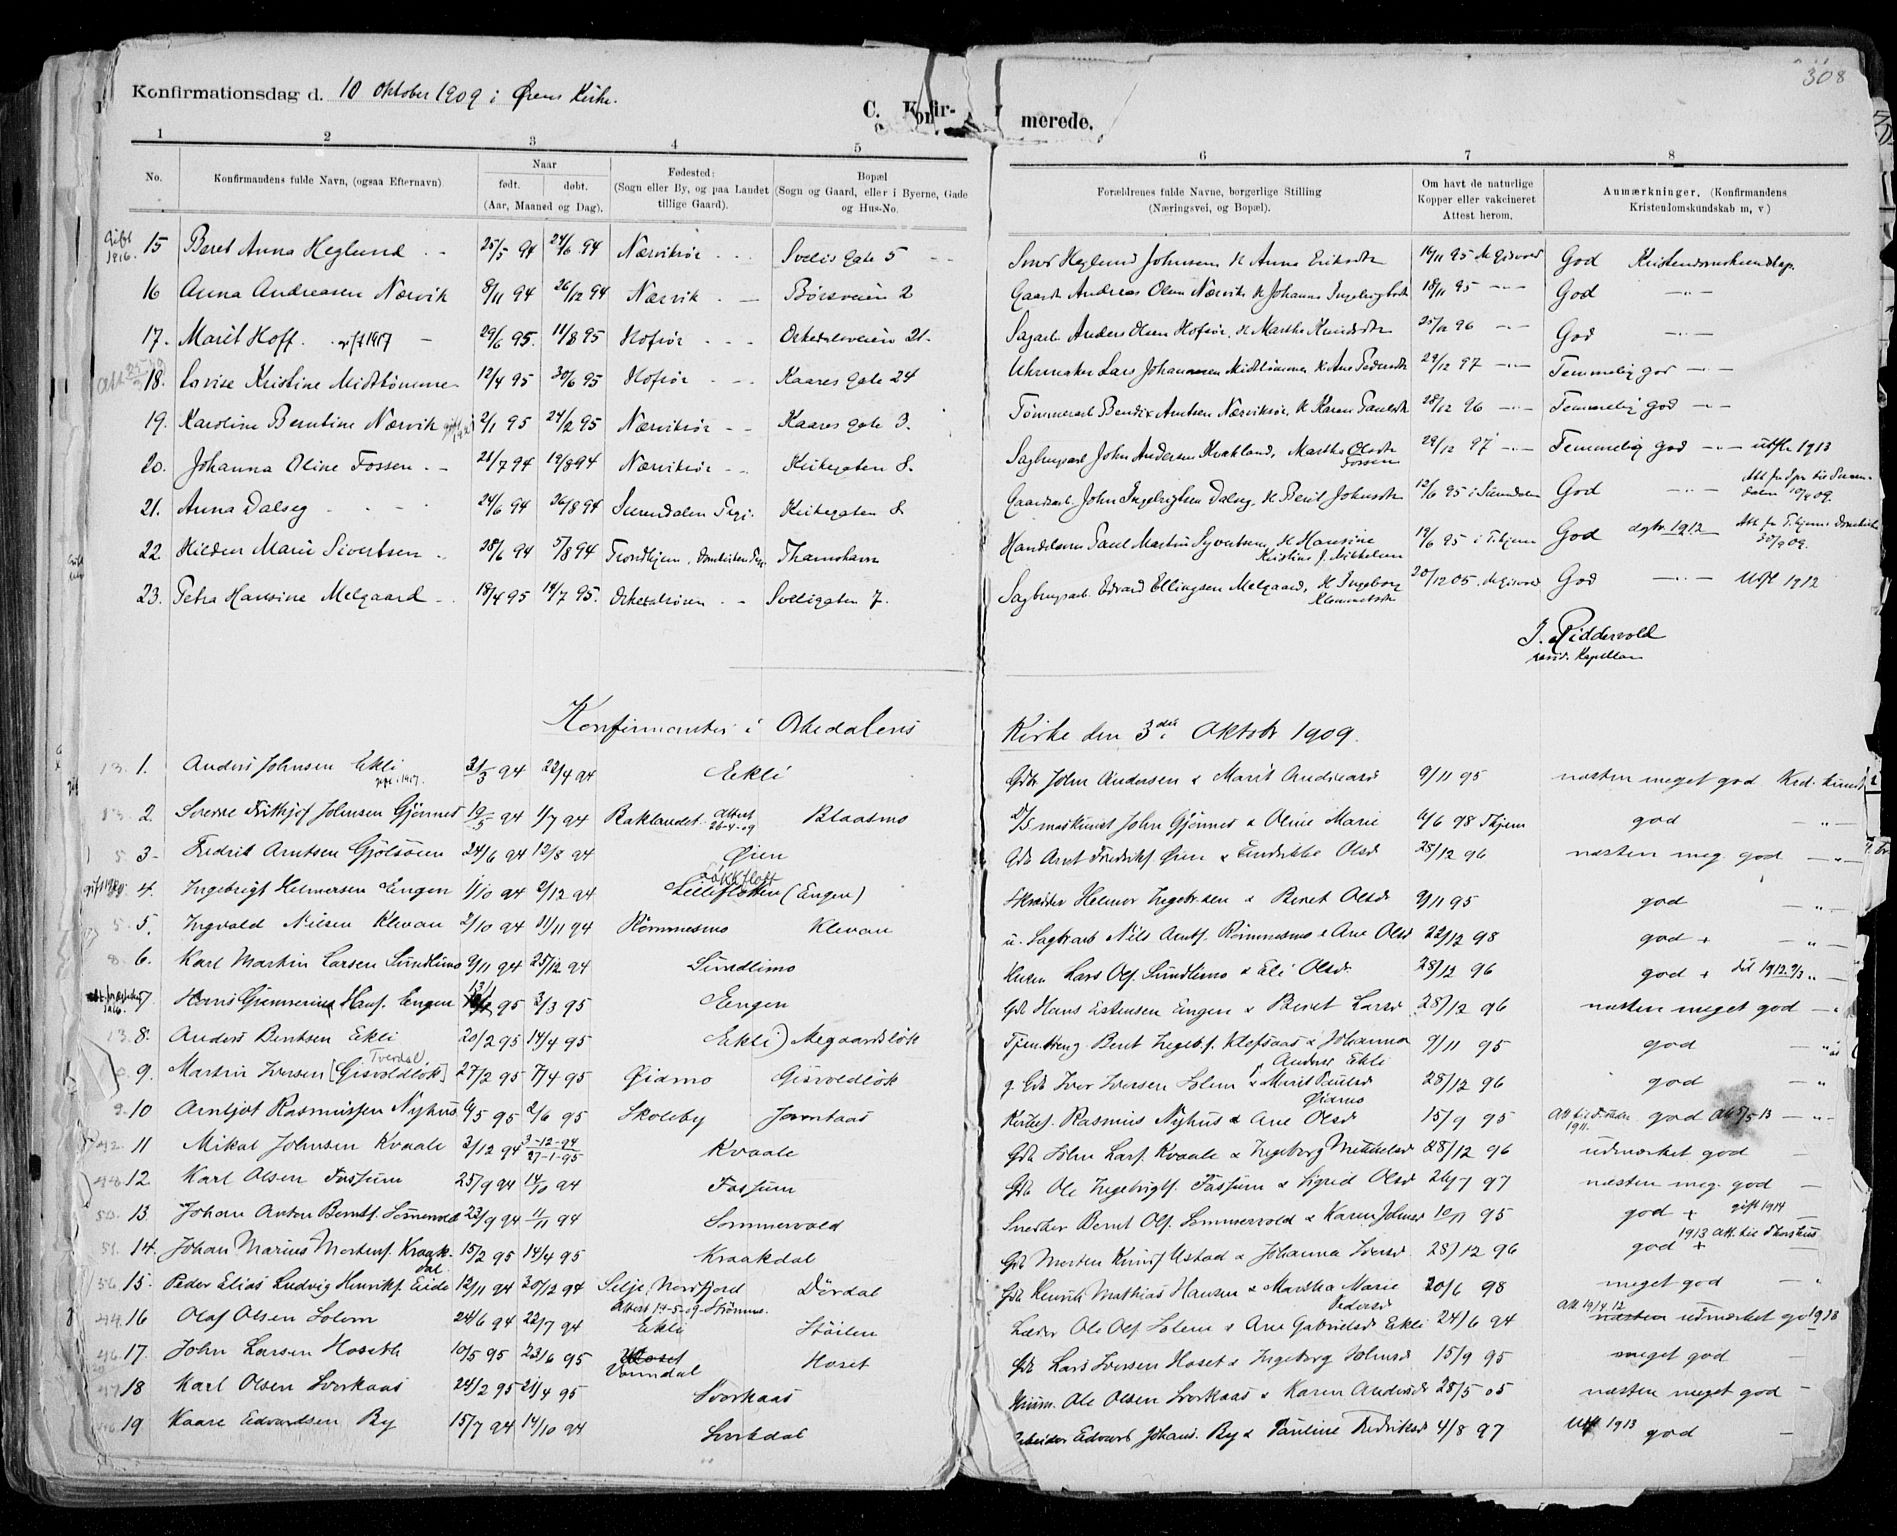 308
Konfirmationsdag d. 10 Oktober 1909 i Ørens Kirke.
C. Konfirmerede.
1 2 3 4 5 6 7 8
No. Konfirmandens fulde Navn, (ogsaa Efternavn) Naar født. døbt. (Aar, Maaned og Dag). Fødested: (Sogn eller By, og paa Landet tillige Gaard). Bopæl (Sogn og Gaard, eller i Byerne, Gade og Hus-No. Forældrenes fulde Navne, borgerlige Stilling (Næringsvei, og Bopæl). Om havt de naturlige Kopper eller vakcineret Attest herom. Anmærkninger. (Konfirmandens Kristendomskundskab m, v.)
Gift 1916. 15 Beret Anna Heglund 25/5 94 24/6 94 Nærviksør Svelis gate 5 Smed Heglund Johnsen, H. Anna Eriksdtr 16/11 95 God Kristendomskundskap.
16 Anna Andreasen Nærvik 8/11 94 26/12 94 Nærvik Børsveien 2 Gaardr. Andreas Olsen Nærvik H Johanna Ingebrigtsdtr 18/11 95 God
17. Marit Hoff. gift 1917 29/6 95. 11/8 95 Hofsør Orkedalsveien 21. Sagarb. Anders Olsen Hofsør, H. Martha Knudsdtr 25/12 96 God
18. Lovise Kristine Midtlømme 12/4 95 30/6 95 Hofsør Kaares gate 24 Uhrmaker Lars Johannesen Midtlømmer H. Ane Pedersdtr 29/12 97 Temmelig god
19. Karoline Berntine Nærvik 2/1 95 24/2 95 Nærviksør Kaares gate 3. Tømmerarb Bendix Arntsen Nærviksør, H Karen Paulsdtr 28/12 96 Temmelig god
20. Johanna Oline Fossen 21/7 94 19/8 94 Nærviksør Kirkegaten 8. Sagbrugsarb John Andersen Kvakland, Martha Olsdtr Fossen 29/12 97 Temmelig god utfl. 1913
21. Anna Dalseg 24/6 94 26/8 94 Surendalen Kirkegaten 8 Gaardarb. John Ingebrigtsen Dalseg, H Berit Johnsdtr 12/6 95 i Surendalen God
22. Hilden Marie Sivertsen 28/6 94 5/8 94 Trondhjem, Domkirken Thamshavn Handelsm Paul Martin Syvertsen, H Hansine Kristine J. Mikkelsen 19/6 95 i T.hjem God 1912
23. Petra Hansine Melgaard 18/4 95 14/7 95. Orkedalsøren Sveligaten 7. Sagbrugsarb. Edvard Ellingsen Melgaard, H Ingeborg Klemmetsdtr 20/12 05. God Utfl 1912
J. Riddervold
resid. Kapellan
Konfirmanter i Orkedalens Kirke den 3die Oktobr 1909.
1. Anders Johnsen Ekli 31/3 94 22/4 94 Eekli Gbr John Andersen & Marit Andreasd 9/11 95 næsten meget god Krd. kundsk
2. Sverre Fridthjof Johnsen Gjønnes 19/5 94 1/7 94 Baklandet Attest 26-4-09 Blaasmo D/S maskinist John Gjønnes & Oline Marie 6/6 98 Thjem god
3. Fredrik Arntsen Gjølsøien 24/6 94 12/8 94 Øien Gbr Arnt Fredriksf. Øien & Fredrikke Olsd 28/12 96 næsten meg. god
4. Ingebrigt Helmersen Engen 1/10 94 2/12 94 Lilleflotten (Engen) Skrædder Helmer Ingebr.sen & Beret Olsd 9/11 95 god
5. Ingvald Nilsen Klevan 2/10 94 21/11 94 Rømmesmo Klevan u. Sagbrarb Nils Arntf. Rømmesmo & Ane Olsd 22/12 98 god +
6. Karl Martin Larsen Sundlimo 9/11 94 25/12 94 Sundlimo Husm Lars Olf. Sundlimo & Eli Olsd. 28/12 96 god +
7 Hans Gunnerius Hansf. Engen 95 3/3 95 Engen Gbr Hans Estensen Engen & Beret Larsd 28/12 96 næsten meget god
8. Anders Berntsen Ekli 20/2 95 14/4 95 Ekli) Megaardsløk Tjen.dreng Bernt Ingebr.f. Klefsaas & Johanna Andersd Ekli 9/11 95 god
9. Martin Iversen [Gisvoldløk] Tverdal 27/2 95 7/4 95 Øidmo Gisvoldløk g. Gbr Iver Iversen Solem & Marit Paulsd Øidmo 28/12 96 god
10 Arnljot Rasmussen Nyhus 6/5 95 2/6 95 Skoleby Kirkes. Rasmus Nyhus & Ane Olsd 15/9 95 1911. god Att 5/5 13
11 Mikal Johnsen Kvaale 2/12 94 3-12-94 27-1-95 Kvaale Gbr John Larsf. Kvaale & Ingeborg Mikkelsd 28/12 96 udmærket god
12 Karl Olsen Fossum 25/9 94 14/10 94 Fossum Gbr Ole Ingebrigtf. Fossum & Sigrid Olsd 26/7 97 næsten meg. god
13 Johan Anton Berntf. Sommervold 23/9 94 11/11 94 Sommervold Snedker Bernt Olf. Sommervold & Karen Johnsd 10/11 95 god + gift 1914
14. Johan Marius Mortenf. Kraakdal 15/2 95 14/4 95 Kraakdal Gbr Morten Knudf Ustad & Johanna Iversd. 28/12 96 god + 1913 Att. til Thorshus
15. Peder Elias Ludvig Henrikf. Eide 12/11 94 30/12 94 Selje, Nordfjord Attest 14-5-09 Strømme. Dørdal Gbr Henrik Mathias Hansen & Martha Marie Pedersd 20/6 98 meget god
16 Olaf Olsen Solem 24/6 94 22/7 94 Ekli Støilen Læder Ole Olf Solem & Ane Gabrielsd Ekli 24/6 94 Att 19/4 12 næsten udmærket god 1913
17. John Larsen Hoseth 10/5 95 23/6 95 Hoset Vormdal Hoset Gbr Lars Iversen Hoset & Ingeborg Johnsd 15/9 95 meget god
18 Karl Olsen Svorkaas 24/2 95 21/4 95 Svorkaas Ole Olsen Svorkaas & Karen Andersd 28/5 05 næsten meget god
19 Kaare Edvardsen By 15/7 94 14/10 94 Svorkdal Arbeider Edvard Johans. By & Pauline Fredriksd 4/8 97 Utfl 1913 god